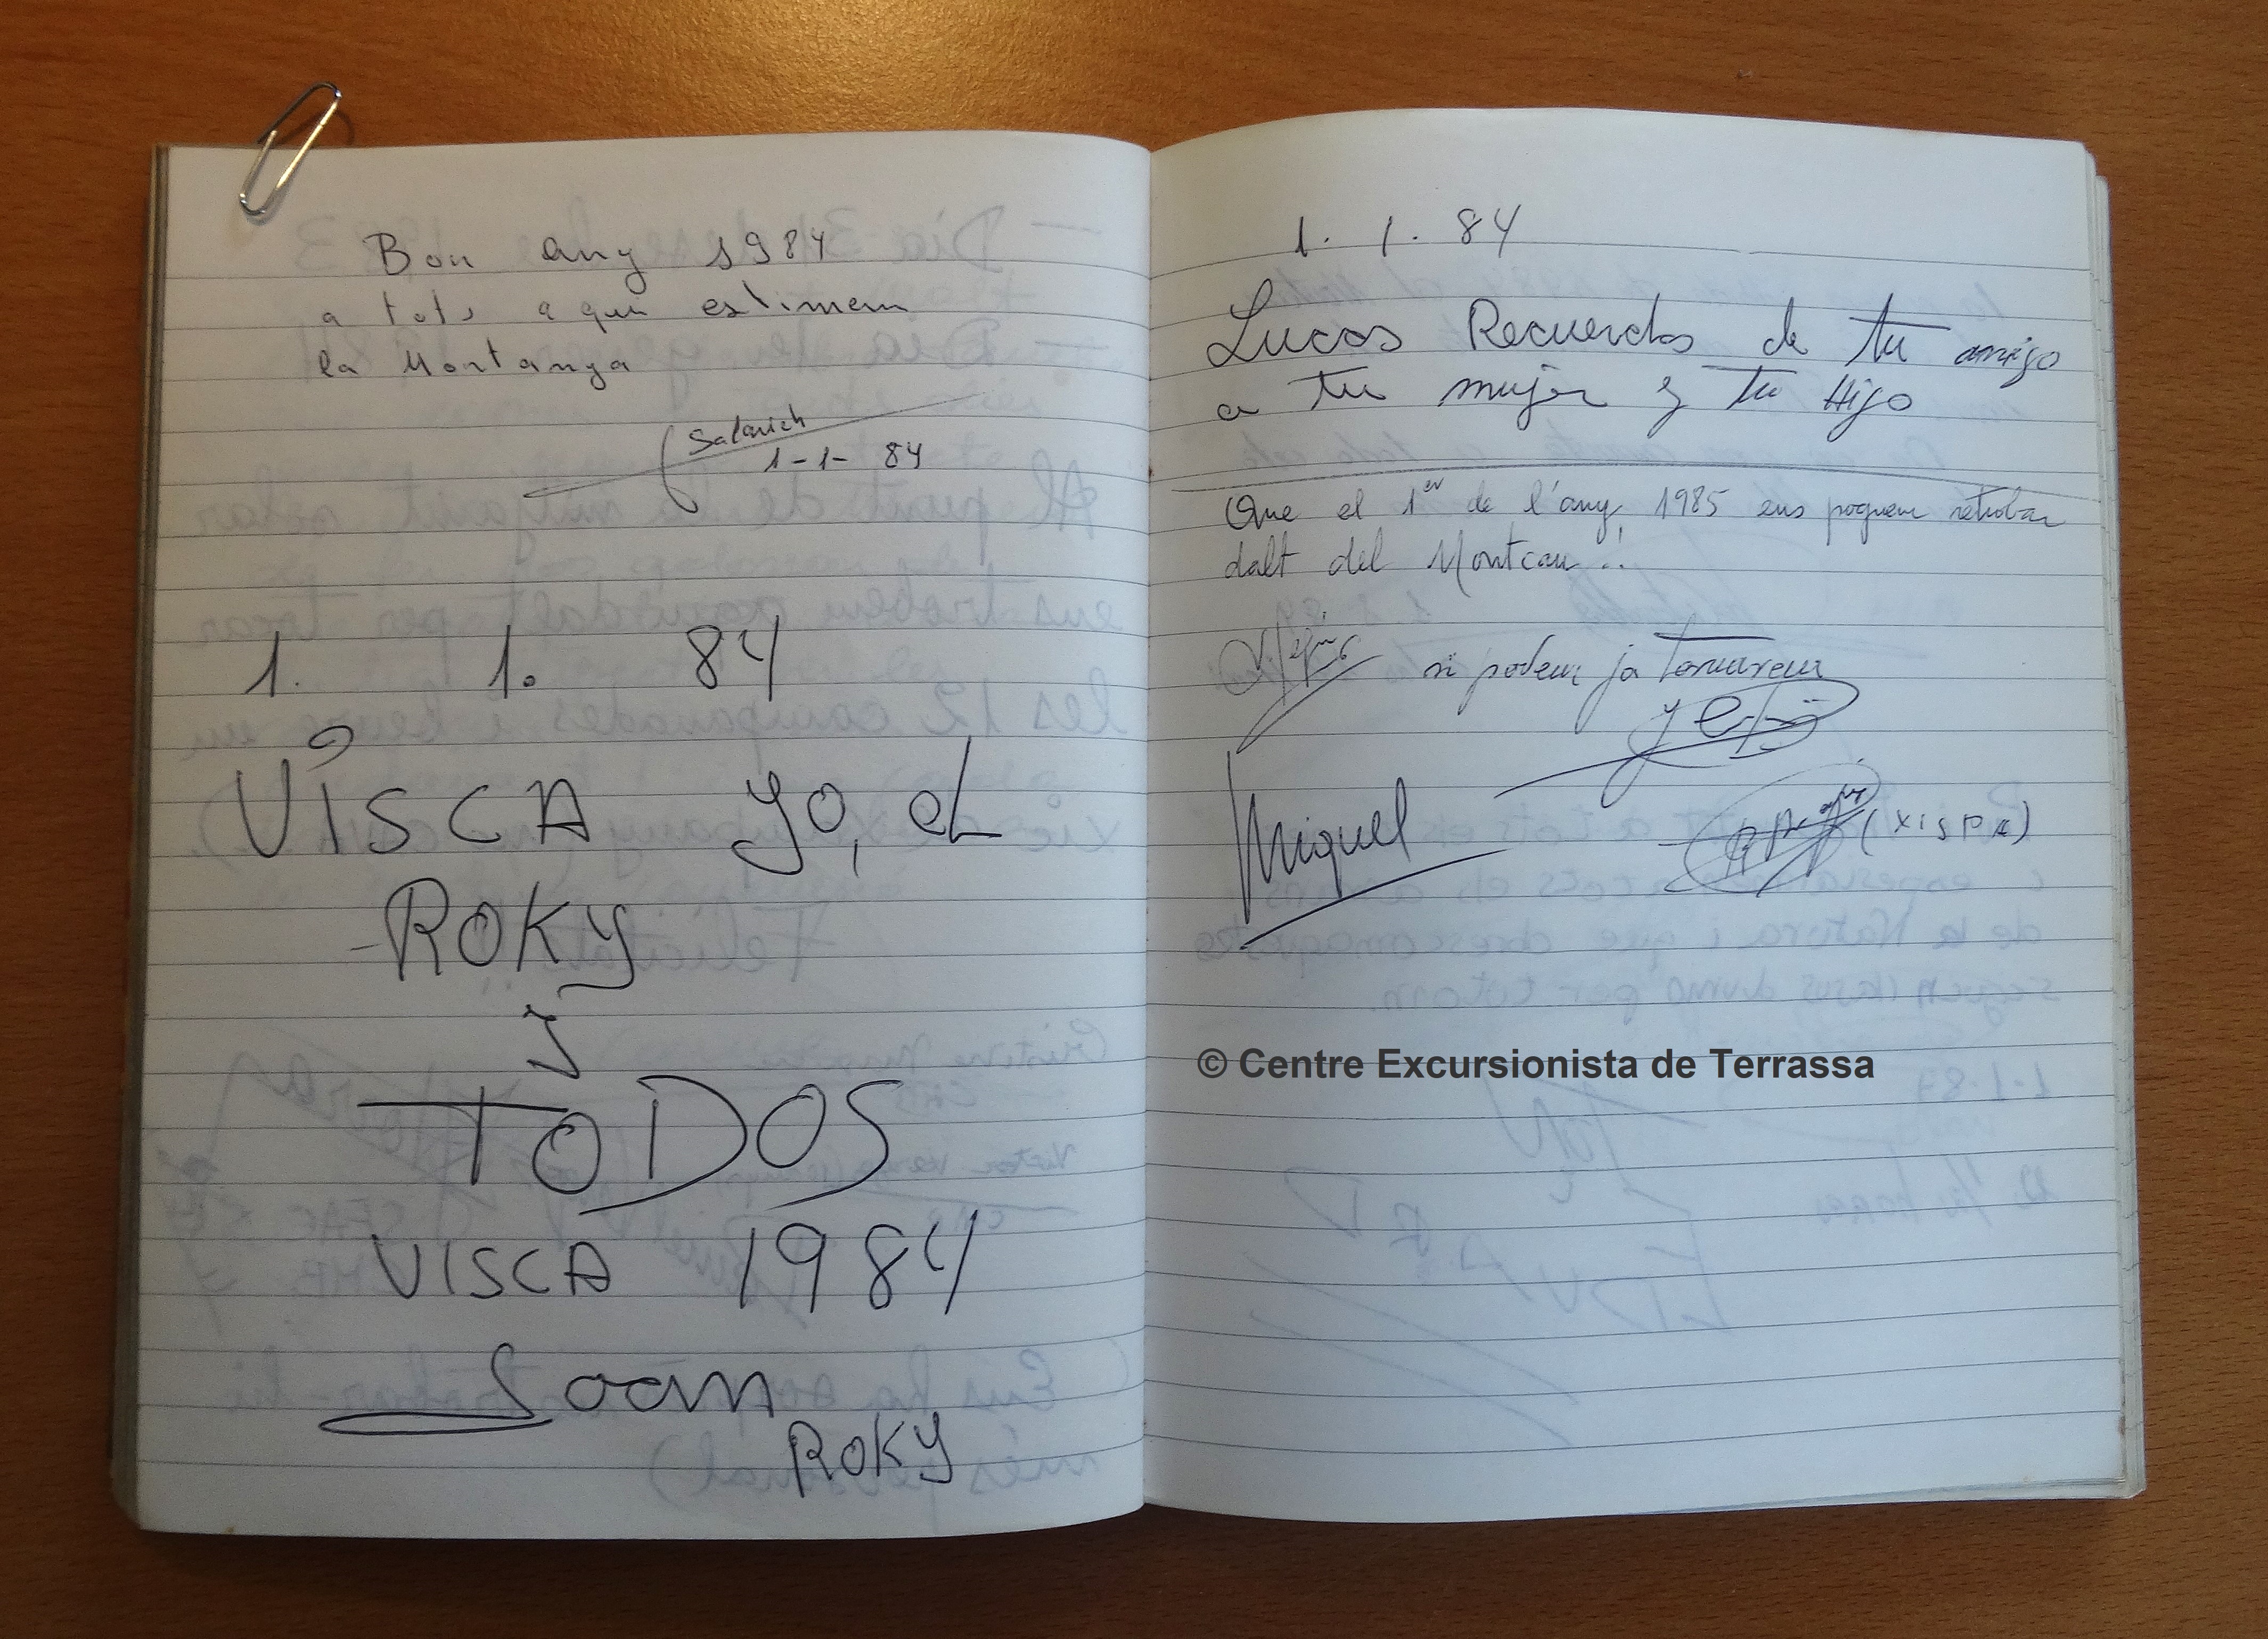 Bon any 1984
a tots a qui estimem
la Montanya
Salarich
1-1-84
1. 1. 84
VISCA YO, EL
ROKY
Y
TODOS
VISCA 1984
Joan
ROKY
1. 1. 84
Lucas Recuerdos de tu amigo
a tu mujer y tu Hijo
Que el 1er de l'any 1985 ens poguem retrobar
dalt del Montcau!!
si podem ja tornarem
Miquel
(XISPA)
© Centre Excursionista de Terrassa